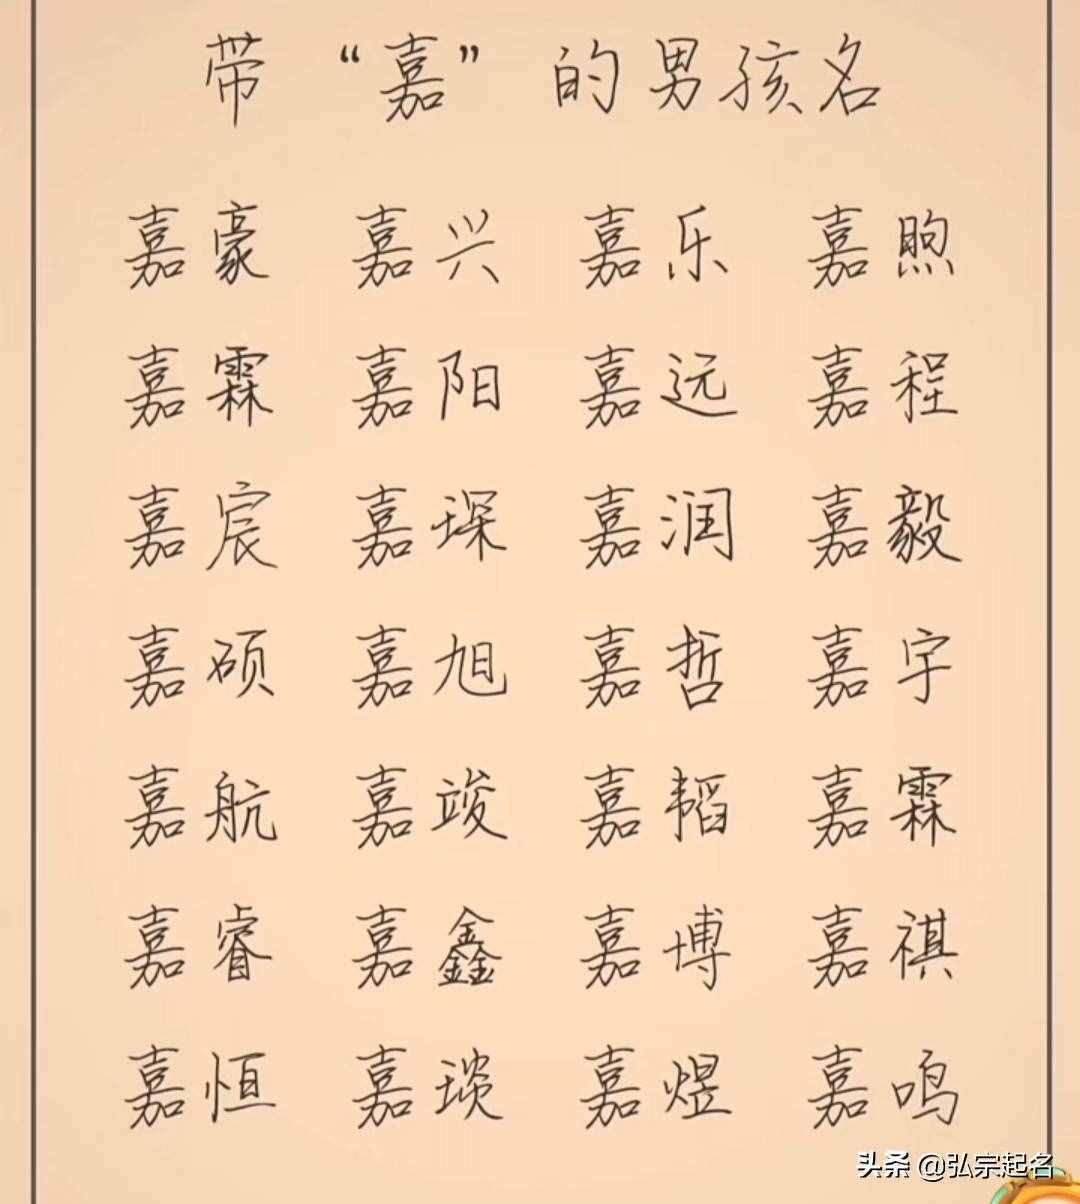 带“嘉”的男孩名
嘉豪 嘉兴 嘉乐 嘉煦
嘉霖 嘉阳 嘉远 嘉程
嘉宸 嘉琛 嘉润 嘉毅
嘉硕 嘉旭 嘉哲 嘉宇
嘉航 嘉竣 嘉韬 嘉霖
嘉睿 嘉鑫 嘉博 嘉祺
嘉恒 嘉琰 嘉煜 嘉鸣
头条 @弘宗起名